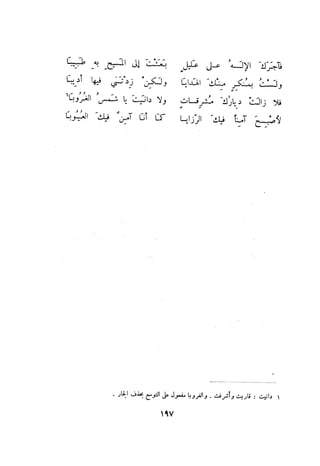 فآجَرَكَ الإلَهُ على عَليلٍ بَعَثْتَ إلى المَسيحِ بِهِ طَبيبَا
ولَسْتُ بمُنكِرٍ مِنكَ الهَدايَا ولَكِنْ زِدْتَني فيها أديبَا
فَلا زالَتْ دِيارُكَ مُشرِقاتٍ ولا دانَيْتَ يا شَمْسُ الغُرُوبَا١
لأُصْبِحَ آمِناً فيكَ الرَّزايَا كَمَا أنا آمِنٌ فيكَ العُيُوبَا
١ دانيت : قاربت وأشرفت . والغروبا مفعول على التوسع بحذف الجار .
١٩٧